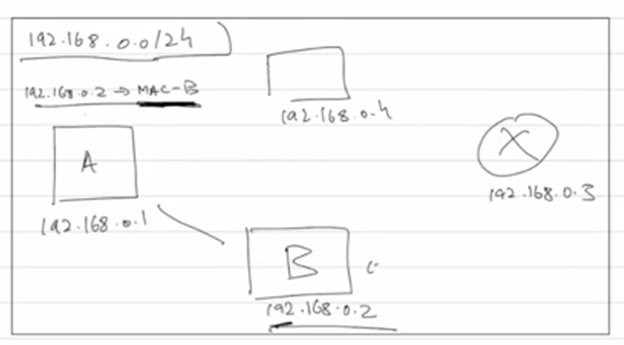 192.168.0.0/24
192.168.0.2 → MAC-B
192.168.0.4
A
X
192.168.0.3
192.168.0.1
B
192.168.0.2